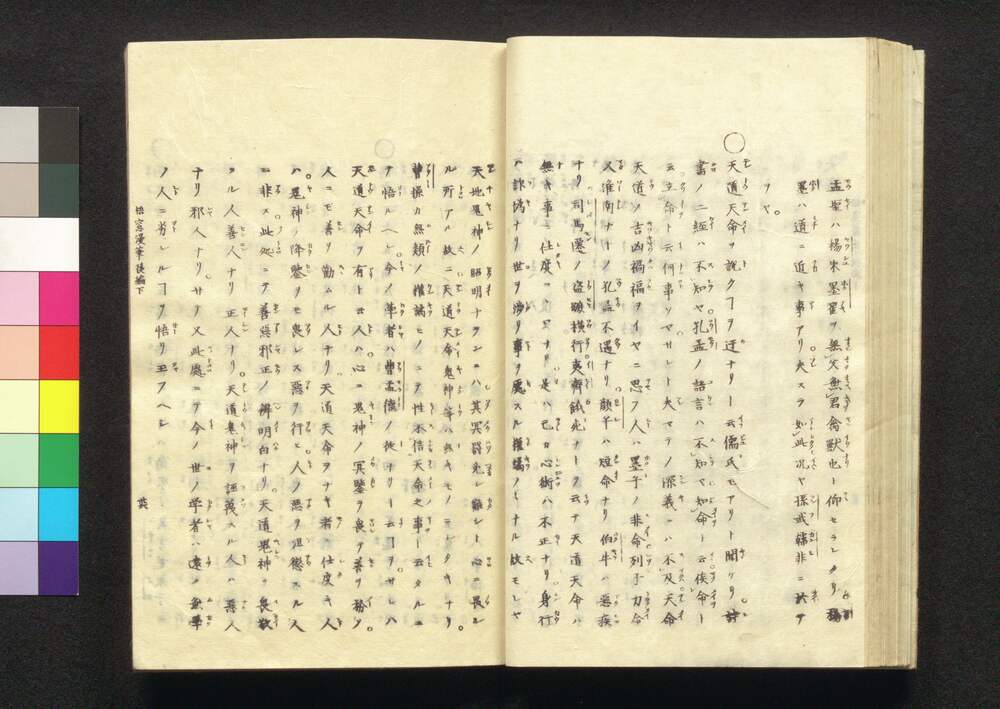 孟聖ハ楊朱墨翟ヲ無父無君禽獣也ト仰セラレタリ楊
墨ハ道ニ近キ事アリ夫スラ如此況ヤ孫武韓非ニ於テ
ヲヤ
○天道天命ヲ説クヿヲ迂ナリト云儒氏モアリト聞ケリ詩
書ノ二経ハ不知ヤ孔孟ノ語言ハ不知ヤ知命ト云俟命ト
云立命ト云何事ソヤサレト夫マテノ深義ハ不及天命
天道ノ吉凶禍福ヲイヤニ思フ人ハ墨子ノ非命列子力命
又淮南ナトノ孔孟不遇ナリ顔子ハ短命ナリ伯牛ハ悪疾
ナリ司馬遷ノ盗跖横行夷斉餓死ナト云テ天道天命ハ
無キ事ニ仕度ツヽナリ是ハ己カ心術ハ不正ナリ身行
ハ詐偽ナリ世ヲ渉リ事ヲ處スル權譎ノミナル故モシヤ
天地鬼神ノ照明ナランニハ其冥罸免レ難シト心ニ畏レ
ル所アル故ニ天道天命鬼神等ハ無キモノニシタキナリ
曹操カ無頼ノ權譎ヒノミニテ性不信天命之事ト云タルニ
テ悟ルヘシ今ノ筆者ハ曹孟德ノ徒ナリト云ヘリサレハ
天道天命ヲ有トスル人ハ心ニ鬼神ノ冥鑒ヲ畏テ善ヲ務ヲ
人ニモ善ヲ勧ムル人ナリ天道天命ヲナキ者ニ仕度キ人
ハ鬼神ノ降鑒ヲモ畏レス惡ヲ行ヒ人ノ惡ヲ慫慂スル人
ニ非ス此処ニテ善惡邪正ノ辨明白ナリ天道鬼神ヲ畏敬
スル人善人ナリ正人ナリ天道鬼神ヲ誣蔑スル人ハ悪人
ナリ邪人ナリサテ又此處ニテ今ノ世ノ学者ハ遠ク無筆
ノ人ニ劣レルヿヲ悟リ玉フヘシ
梧窓漫筆後編下